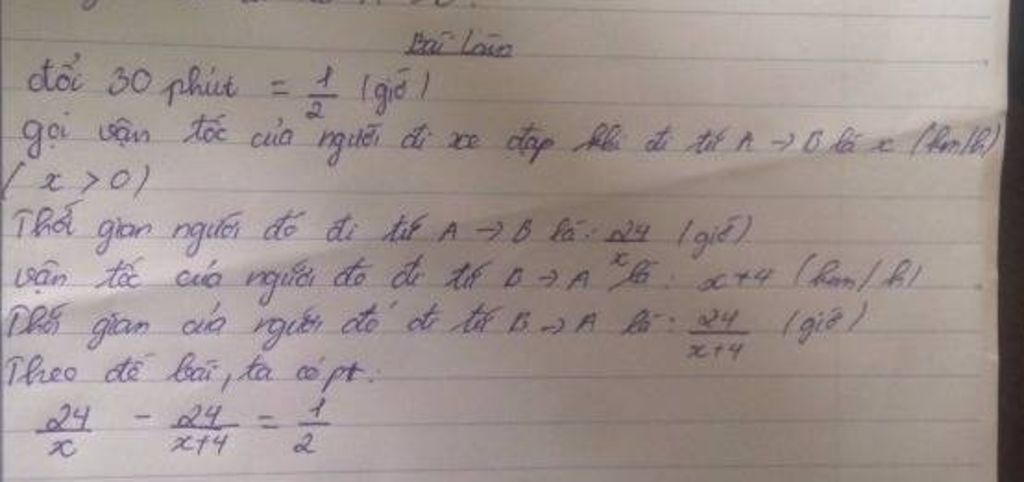 Bài làm
đổi 30 phút = 1/2 (giờ)
gọi vận tốc của người đi xe đạp khi đi từ A → B là x (km/h)
(x > 0)
Thời gian người đó đi từ A → B là: 24/x (giờ)
vận tốc của người đó đi từ B → A là: x+4 (km/h)
Thời gian của người đó đi từ B → A là: 24/x+4 (giờ)
Theo đề bài, ta có pt:
24/x - 24/x+4 = 1/2